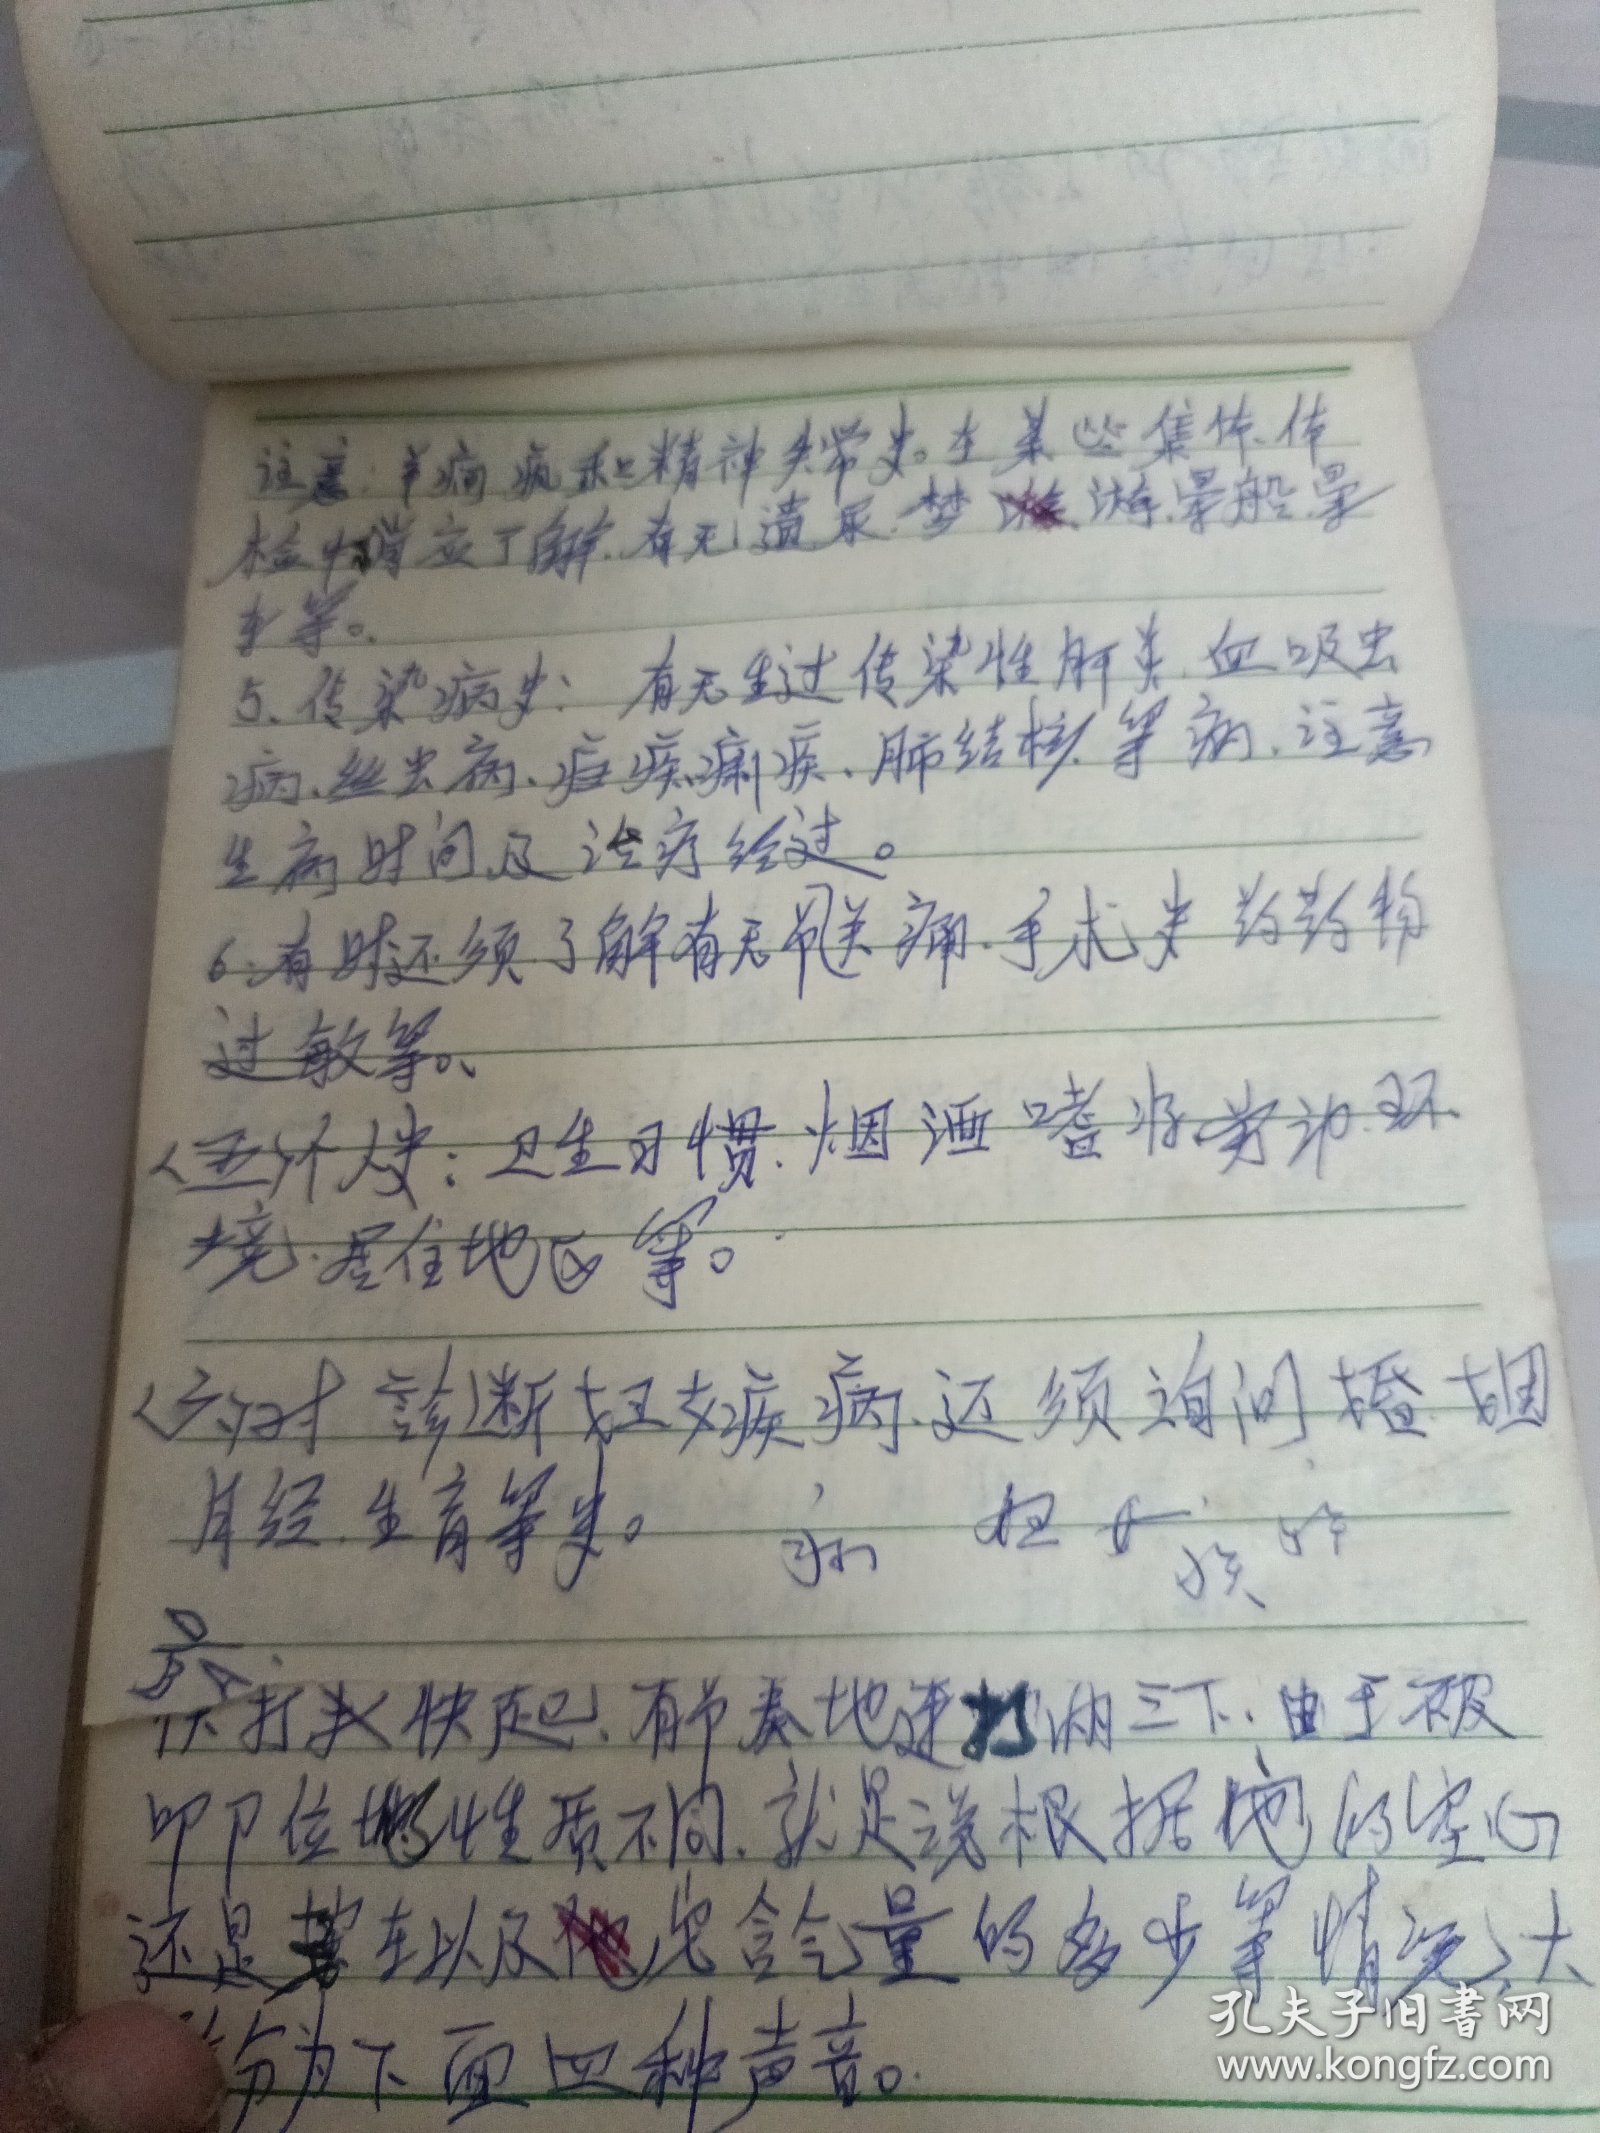 注意.羊痫疯和精神失常史。在某些集体.体
检中常应了解.有无遗尿.梦游.晕船.晕
车等。
5、传染病史:有无生过传染性肝炎.血吸虫
病、丝虫病、疟疾、痢疾、肺结核等病.注意
生病时间及治疗经过。
6.有时还须了解有无关痛.手术史药药物
过敏等。
〈五〉个人史:卫生习惯.烟酒嗜好劳动.环
境.居住地区等。
〈六〉对診断妇女疾病.还须询问婚姻
月经.生育等史。
病 妇女 疾
快打我快起.有节奏地连打两三下.由于被
叩卩位地性质不同.就是说根据他的实心
还是实在以及它含气量的多少等情况.大
分为下面四种声音。
孔夫子旧书网
www.kongfz.com